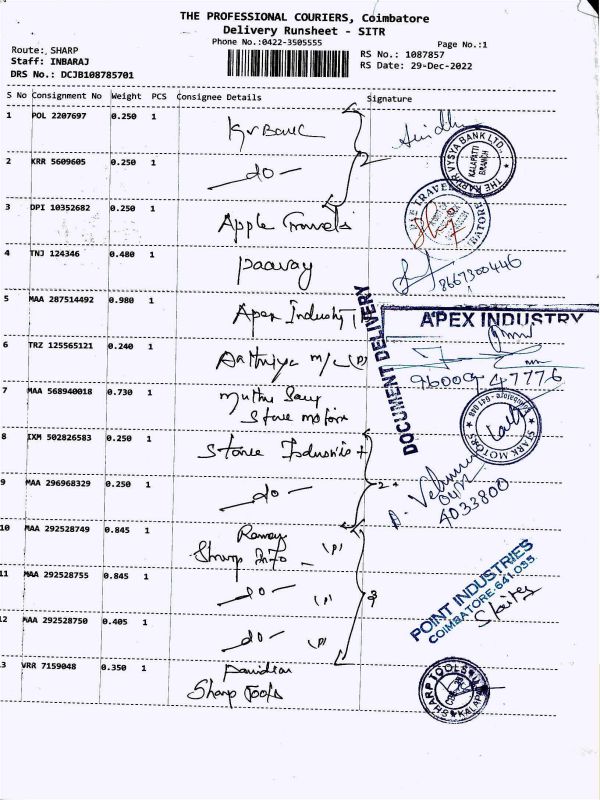 THE PROFESSIONAL COURIERS, Coimbatore
Delivery Runsheet - SITR
Phone No.:0422-3505555
Page No.:1
Route: SHARP
RS No.: 1087857
Staff: INBARAJ
RS Date: 29-Dec-2022
DRS No.: DCJB108785701
S No Consignment No Weight PCS Consignee Details Signature
1 POL 2207697 0.250 1
2 KRR 5609605 0.250 1 -do-
2
THE KARUR VYSYA BANK LTD.,
KALAPATTI
BRANCH
3 DPI 10352682 0.250 1 Apple Travels
4 TNJ 124346 0.480 1 paavay
8667300446
5 MAA 287514492 0.980 1 Apex Industry
DOCUMENT DELIVERY
APEX INDUSTRY
6 TRZ 125565121 0.240 1 Aathriya m/c (P)
96009 47776
7 MAA 568940018 0.730 1
STARK MOTORS
8 IXM 502826583 0.250 1
9 MAA 296968329 0.250 1 -do-
2
4033800
10 MAA 292528749 0.845 1
Sharp Info (P)
11 MAA 292528755 0.845 1 -do- (P)
3
POINT INDUSTRIES
COIMBATORE-641 035
12 MAA 292528750 0.405 1 -do- (P)
13 VRR 7159048 0.350 1
Sharp Tools
SHARP TOOLS